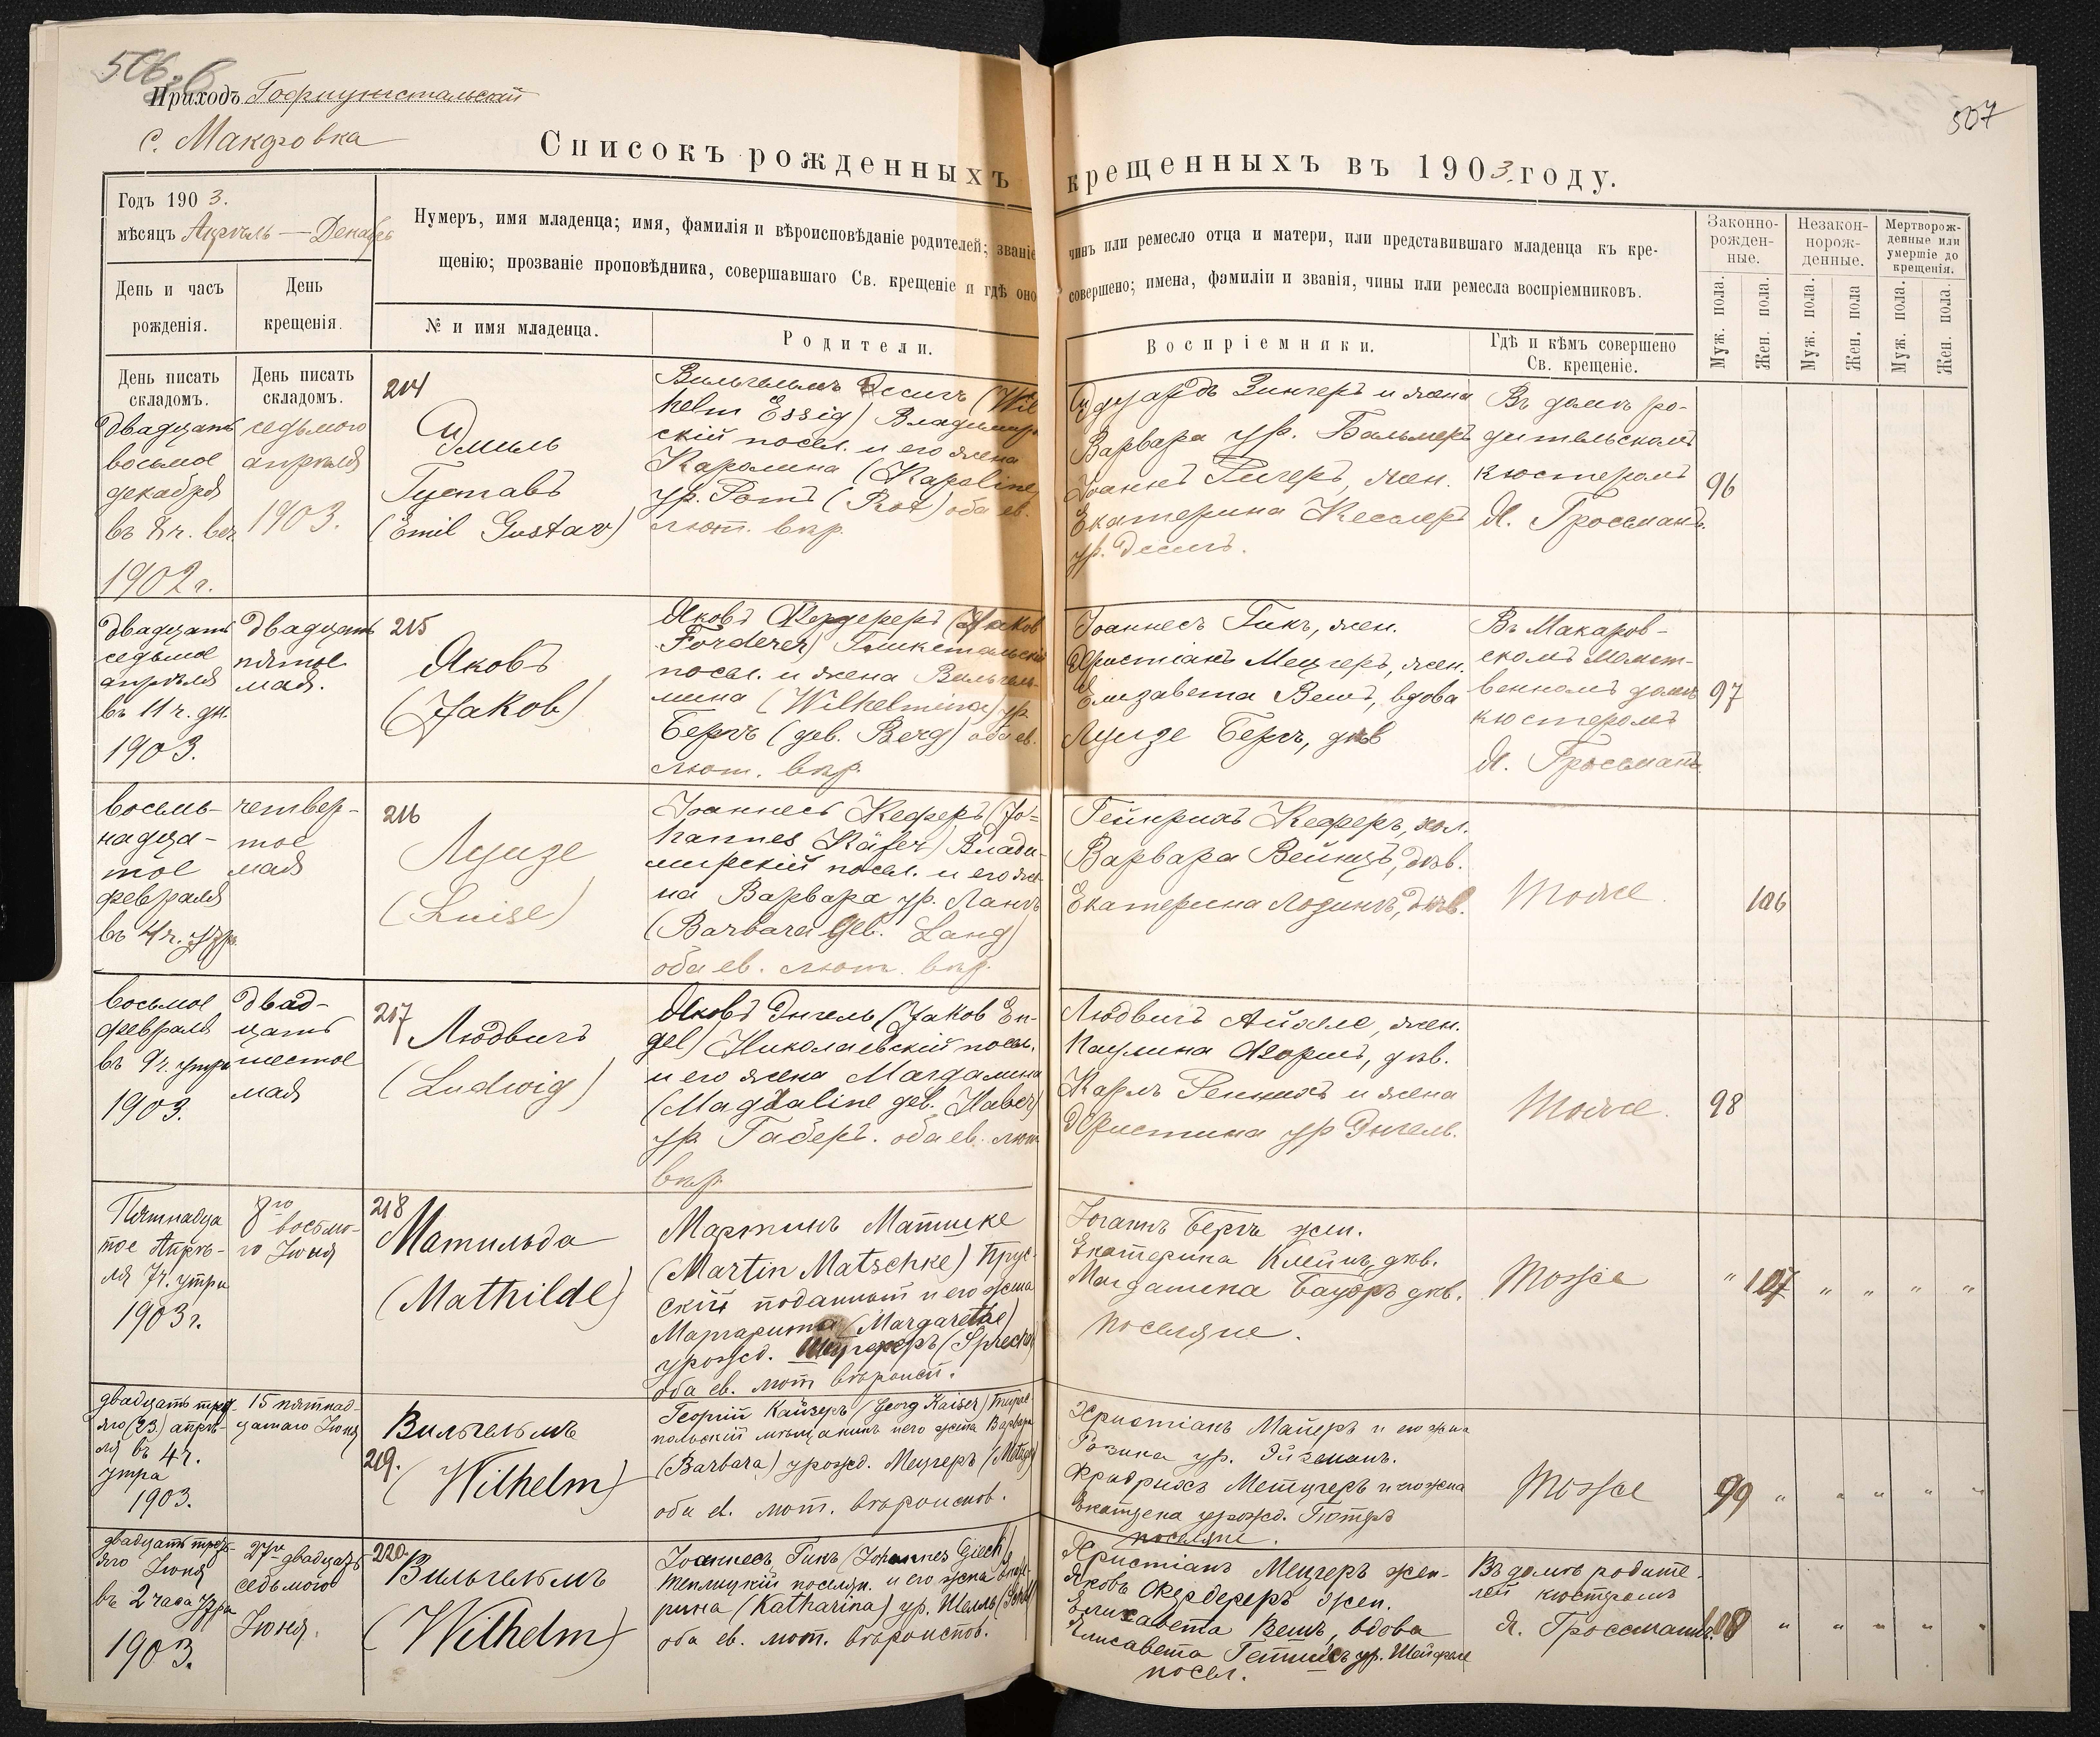 506
Приходъ Гофнунгстальскій
с. Макаровка
507
Списокъ рожденныхъ
крещенныхъ въ 1903 году.
Годъ 1903.
мѣсяцъ Апрѣль — Декабрь
Нумеръ, имя младенца; имя, фамилія и вѣроисповѣданіе родителей; званіе
щенію; прозваніе проповѣдника, совершавшаго Св. крещеніе и гдѣ оно
чинъ или ремесло отца и матери, или представившаго младенца къ кре-
совершено; имена, фамиліи и званія, чины или ремесла воспріемниковъ.
День и часъ
рожденія.
День
крещенія.
№ и имя младенца.
Родители.
Воспріемники.
Гдѣ и кѣмъ совершено
Св. крещеніе.
Законно-
рожден-
ные.
Незакон-
норож-
денные.
Мертворож-
денные или
умершіе до
крещенія.
Муж. пола.
Жен. пола.
Муж. пола.
Жен. пола
Муж. пола.
Жен. пола.
День писать
складомъ.
День писать
складомъ.
двадцать
восьмое
декабря
въ 8 ч. веч.
1902 г.
седьмого
апрѣля
1903.
214
Эмиль
Густавъ
(Emil Gustav)
Вильгельмъ Эссигъ (Wil
helm Essig) Владимир
скій посел. и его жена
Каролина (Karoline)
ур. Ротъ (Rot) оба ев.
лют. вѣр.
Эдуардъ Зингеръ и жена
Варвара ур. Бальмеръ
Іоаннъ Ригеръ, жен.
Екатерина Кесслеръ
ур. Эссигъ.
Въ домѣ ро-
дительскомъ
кюстеромъ
Я. Гроссманъ.
96
двадцать
седьмое
апрѣля
въ 11 ч. дн.
1903.
двадцать
пятое
мая.
215
Яковъ
(Jakob)
Яковъ Фердереръ (Jakob
Förderer) Глюкстальскій
посел. и жена Вильгель-
мина (Wilhelmina) ур.
Бергъ (geb. Berg) оба ев.
лют. вѣр.
Іоаннесъ Гикъ, жен.
Христіанъ Мецгеръ, жен.
Елизавета Вешъ, вдова
Луизе Бергъ, дѣв
Въ Макаров-
скомъ молит-
венномъ домѣ
кюстеромъ
Я. Гроссманъ.
97
восемь-
надца-
тое
февраля
въ 4 ч. утр.
четвер-
тое
мая
216
Луизе
(Luise)
Іоаннесъ Кеферъ (Jo-
hannes Käfer) Влади-
мирскій посел. и его же-
на Варвара ур. Лангъ
(Barbara geb. Lang)
оба ев. лют. вѣр.
Гейнрихъ Кеферъ, хол.
Варвара Вейнцъ, дѣв.
Екатерина Лодингъ, дѣв.
Тоже
106
восьмое
февраля
въ 9 ч. утра
1903.
двад-
цать
шестое
мая
217
Людвигъ
(Ludwig)
Яковъ Энгель (Jakob En-
gel) Николаевскій посел.
и его жена Магдалина
(Magdaline geb. Haber)
ур. Габеръ. оба ев. лют
вѣр.
Людвигъ Айхеле, жен.
Паулина Флоршъ, дѣв.
Карлъ Реннихъ и жена
Христина ур Энгель.
Тоже.
98
Пятнадца
тое Апрѣ-
ля 7 ч. утра
1903 г.
8го
восьмо-
го Іюня
218
Матильда
(Mathilde)
Мартинъ Матшке
(Martin Matschke) Прус-
скій подданный и его жена
Маргарита (Margarethe)
урожд.
оба ев. лют вѣроисп.
Іоганъ Бергъ жен.
Екатерина Клейнъ, дѣв.
Магдалина Бауэръ дѣв.
поселяне.
Тоже
" 107 " " " "
двадцать треть-
яго (23) апрѣ-
ля въ 4 ч.
утра
1903.
15 пятнад-
цатаго Іюня
219.
Вильгельмъ
(Wilhelm)
Георгій Кайзеръ (Georg Kaiser) Тирас-
польскій мѣщанинъ и его жена Варвара
(Barbara) урожд. Мецгеръ (Metzger)
оба ев. лют. вѣроиспов.
Христіанъ Майеръ и его жена
Розина ур. Эйземанъ.
Фридрихъ Метцгеръ и его жена
Екатрена урожд. Гютлеръ
поселяне.
Тоже
99 " " " " "
двадцать треть-
яго Іюня
въ 2 часа утра
1903.
27го двадцать
седьмого
Іюня.
220.
Вильгельмъ
(Wilhelm)
Іоаннесъ Гикъ (Johannes Gieck)
теплицкій поселян. и его жена Екате-
рина (Katharina) ур. Шелль (Schell)
оба ев. лют. вѣроиспов.
Христіанъ Мецгеръ жен.
Яковъ Фердереръ жен.
Елисавета Вешъ, вдова
Елисавета ур. Шейфеле
посел.
Въ домѣ родите-
лей кюстеромъ
Я. Гроссманъ.
100 " " " " "